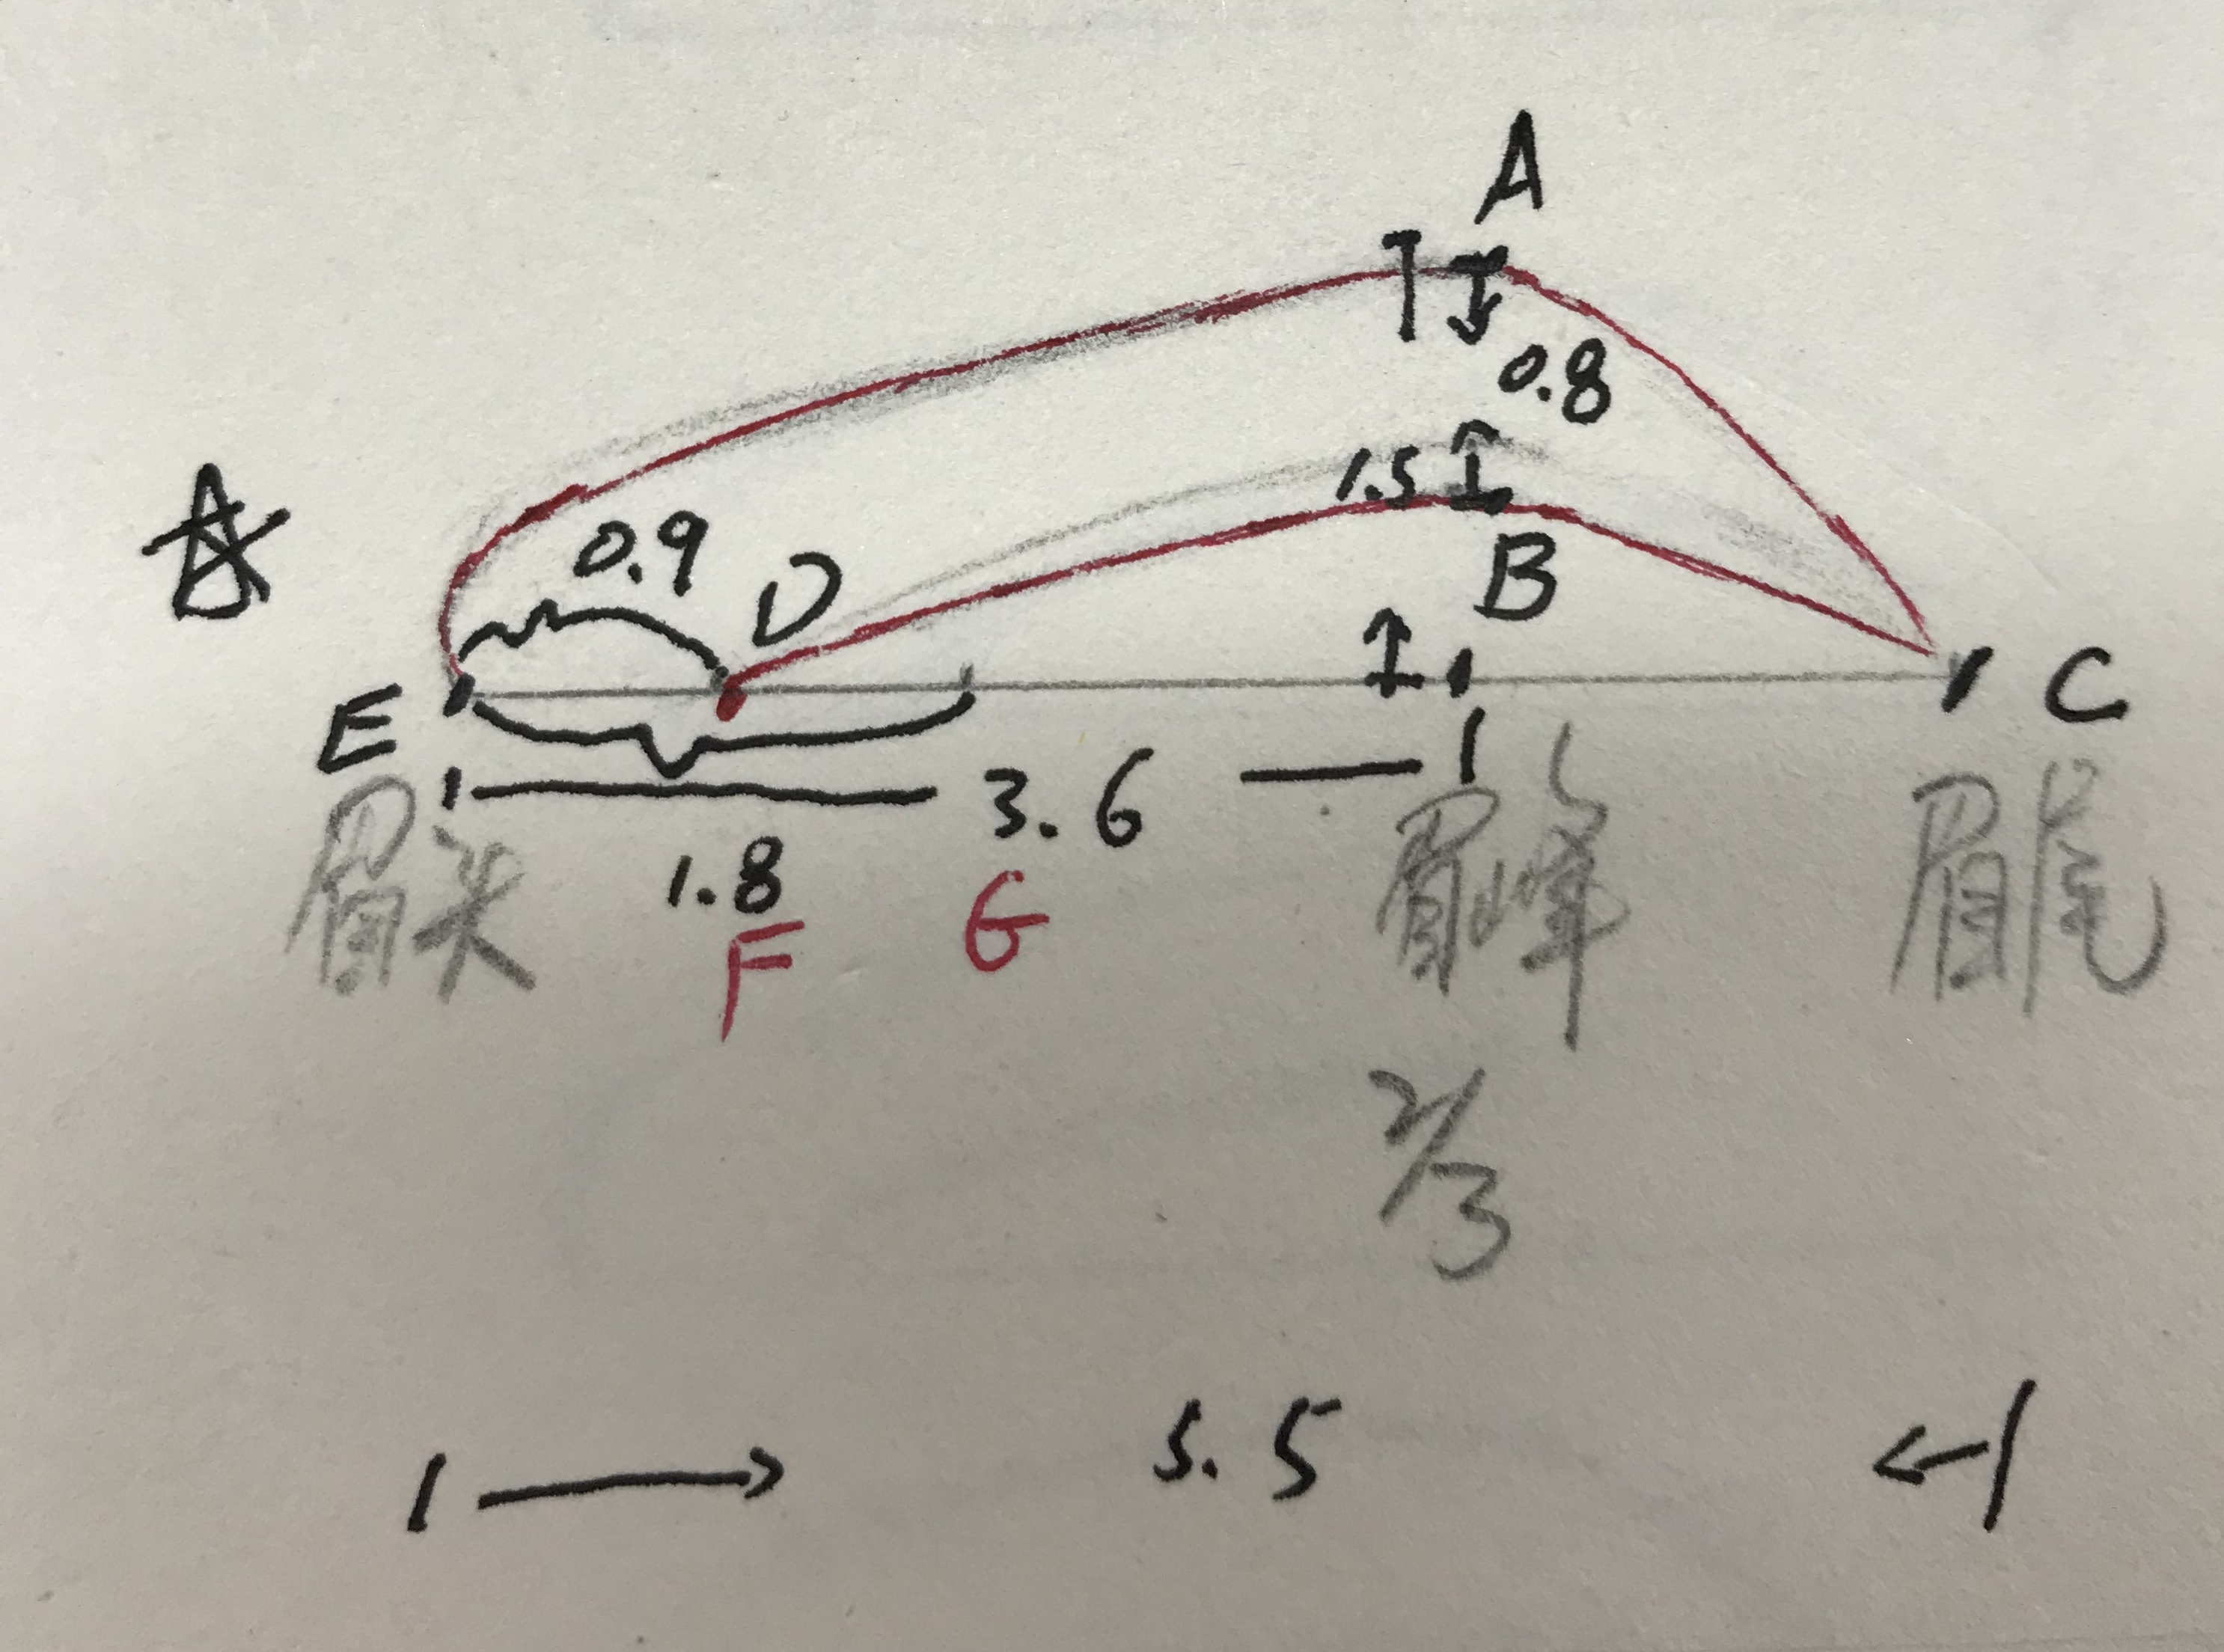 A
0.8
1.5
0.9 D B
E C
3.6
眉头 1.8 眉峰 眉尾
F G
2/3
5.5